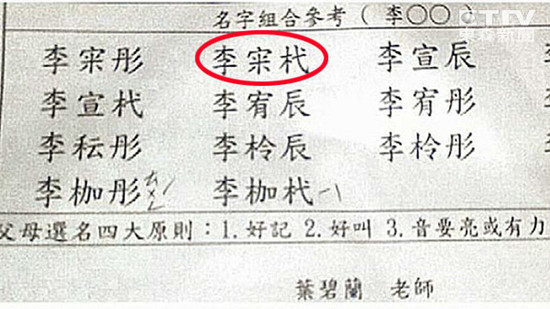 名字組合參考（李○○）
李寀彤 李寀杙 李宣辰
李宣杙 李宥辰 李宥彤
李耘彤 李柃辰 李柃彤
李枷彤 李枷杙
父母選名四大原則：1.好記 2.好叫 3.音要亮或有力
葉碧蘭 老師